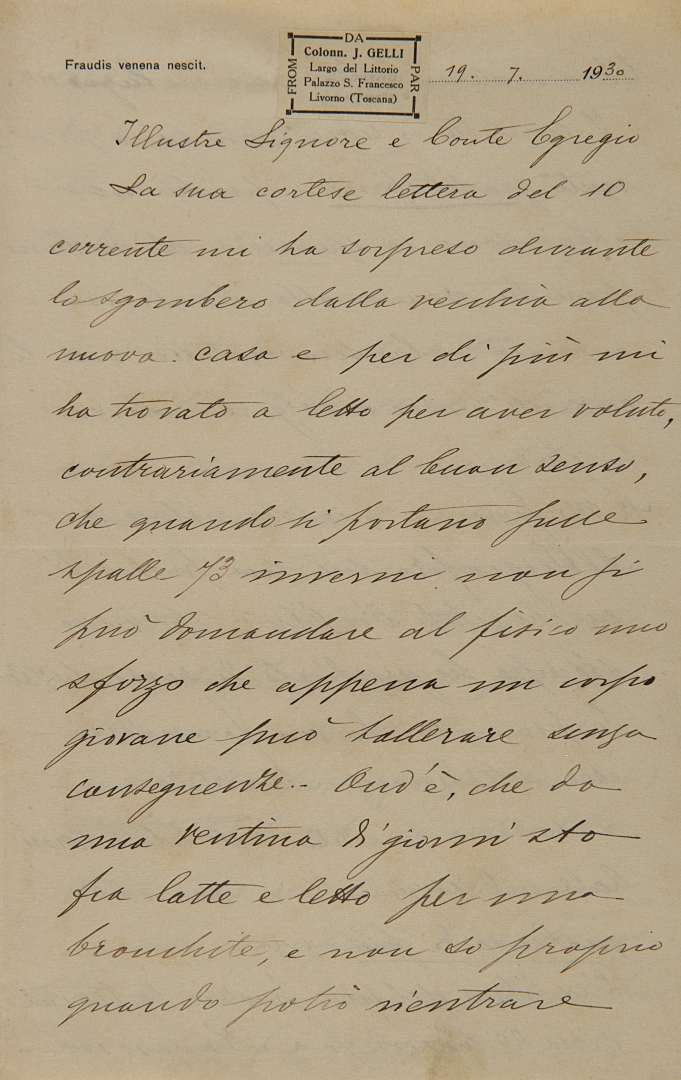 Fraudis venena nescit.
DA
FROM
PAR
Colonn. J. GELLI
Largo del Littorio
Palazzo S. Francesco
Livorno (Toscana)
19. 7. 1930
Illustre Signore e Conte Egregio
La sua cortese lettera del 10
corrente mi ha sorpreso durante
lo sgombero dalla vecchia alla
nuova casa e per di più mi
ha trovato a letto per aver voluto,
contrariamente al buon senso,
che quando si portano sulle
spalle 73 inverni non si
può domandare al fisico uno
sforzo che appena un corpo
giovane può tollerare senza
conseguenze.- Ond'è, che da
una ventina di giorni sto
fra latte e letto per una
bronchite, e non so proprio
quando potrò rientrare